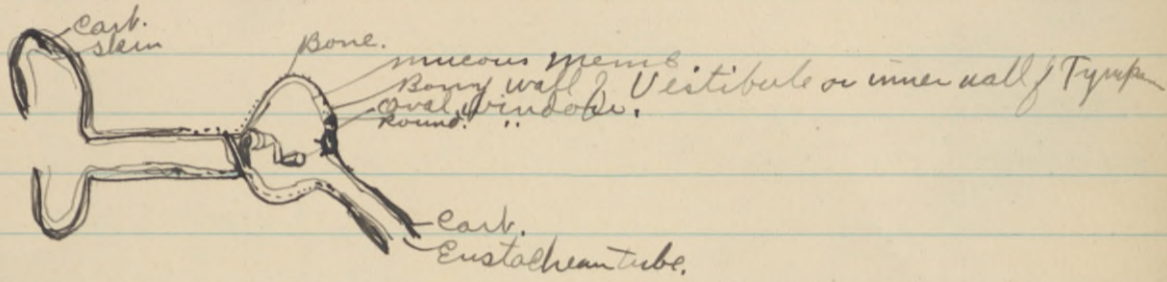 Cart.
skin
Bone.
mucous memb.
Bony wall of Vestibule or inner wall of Tympan
Oval window.
Round. " "
Cart.
Eustachean tube.